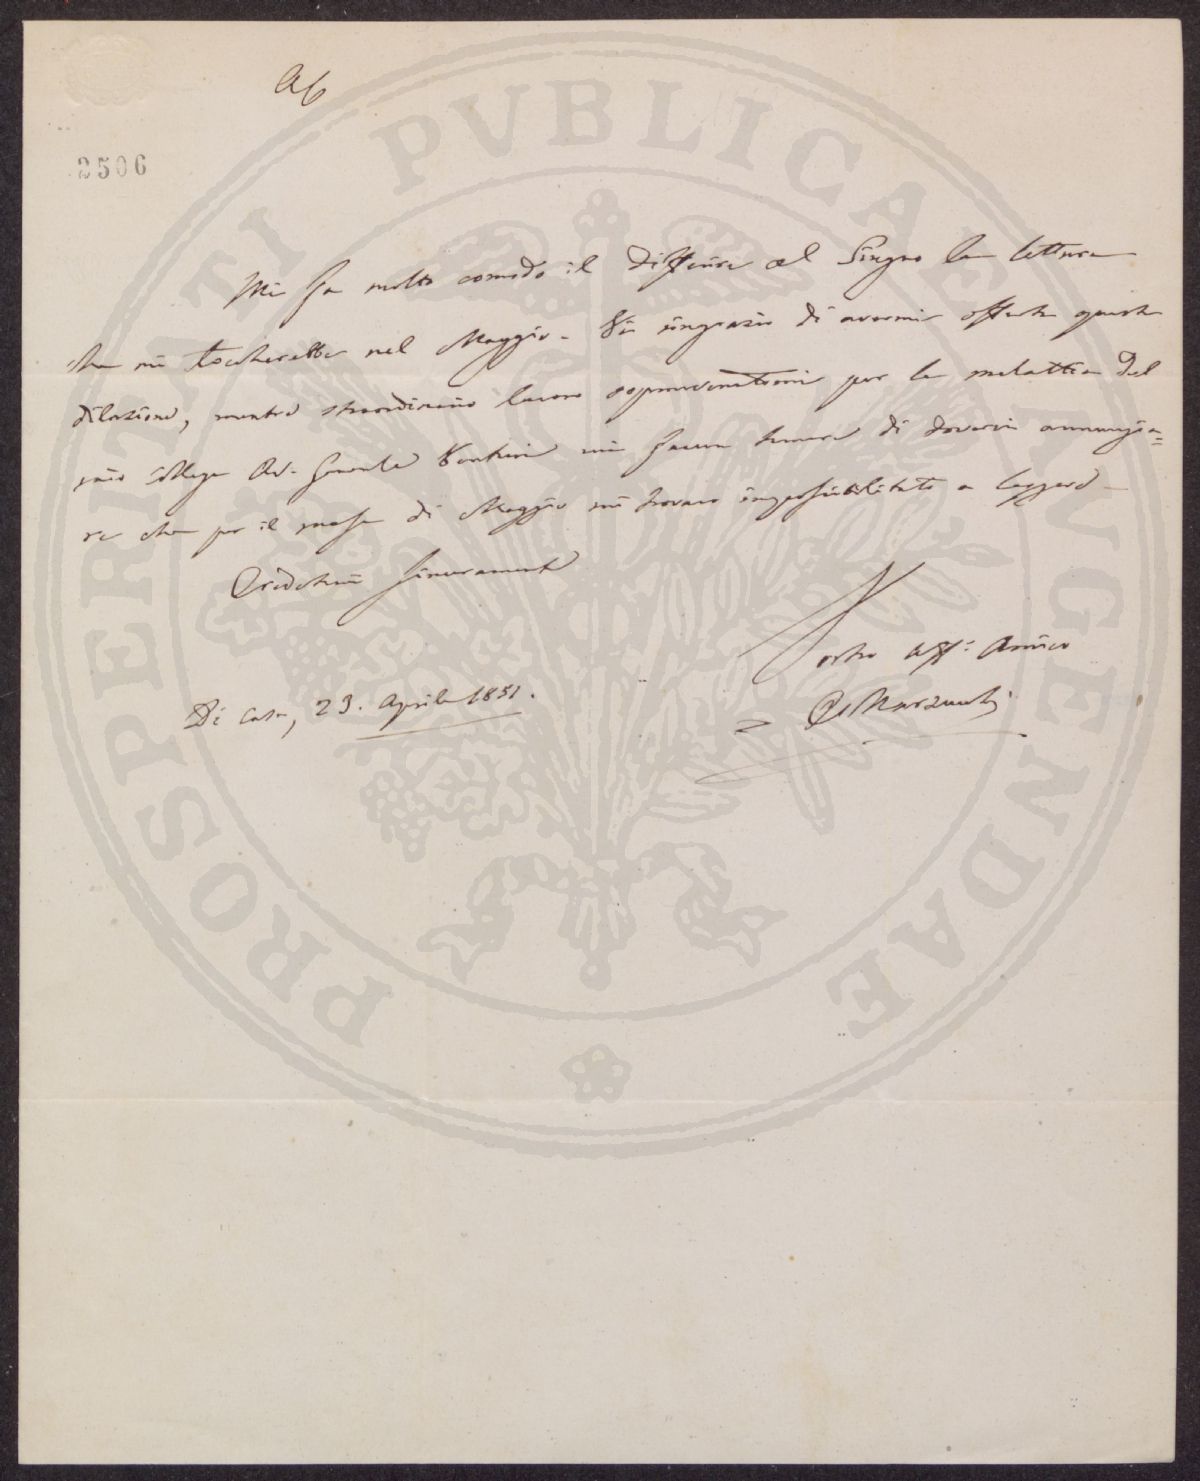 A6
2506
Mi fa molto comodo il differire al Giugno la lettura
che mi toccherebbe nel Maggio. Vi ringrazio di avermi offerta questa
dilazione, mentre straordinario lavoro sopravvenutomi per la malattia del
mio collega Av. Generale Venturi mi faceva temere di dovervi annunzia=
re che per il mese di Maggio mi trovavo impossibilitato a leggere
Credetemi sinceramente
Vostro aff: Amico
Di Casa, 23. Aprile 1851.
Marzucchi
PROSPERITATI PVBLICAE AVGENDAE